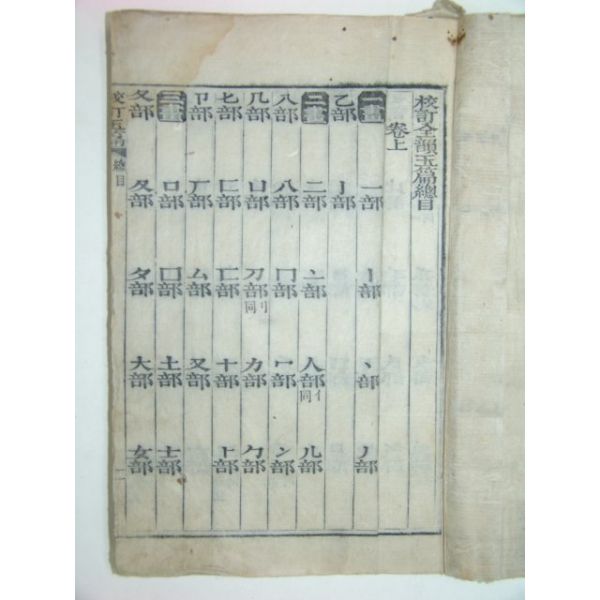 校訂全韻玉篇總目
卷上
一畫 一部 丨部 丶部 丿部
乙部 亅部
二畫 二部 亠部 人部 亻同 儿部
入部 八部 冂部 冖部 冫部
几部 凵部 刀部 刂同 力部 勹部
匕部 匚部 匸部 十部 卜部
卩部 厂部 厶部 又部
三畫 口部 囗部 土部 士部
夂部 夊部 夕部 大部 女部
校訂玉篇 總目